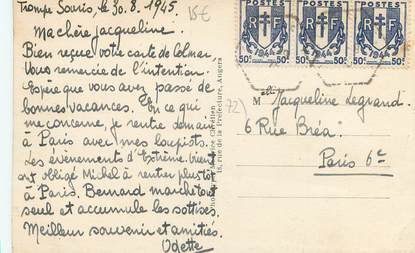 Trompe Souris, le 30.8.1945.
15€
Ma chère Jacqueline.
Bien reçue votre carte de Colmar
Vous remercie de l'intention.
Espère que vous avez passé de
bonnes vacances. En ce qui
me concerne, je rentre demain
à Paris avec mes loupiots.
Les évènements d'Extrême-Orient
ont obligé Michel à rentrer plus tôt
à Paris. Bernard marche tout
seul et accumule les sottises.
Meilleur souvenir et amitiés.
Odette
Chrétien
16, rue de la Préfecture, Angers
POSTES POSTES POSTES
RF RF RF
1944 1944 1944
50c 50c 50c 50c 50c 50c
72)
Melle Jacqueline Legrand.
6 Rue Bréa.
Paris 6e